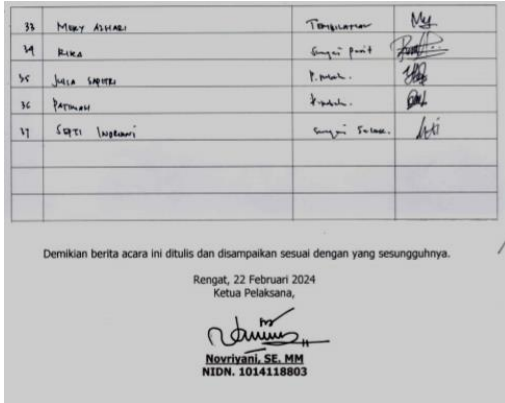 33 MERY ASHARI TEMBILAHAN
34 RIKA Sungai parit
35 JULIA SAPITRI P. rebah.
36 PATIMAH P. rebah.
37 SEPTI INDRIANI Sungai
Demikian berita acara ini ditulis dan disampaikan sesuai dengan yang sesungguhnya.
Rengat, 22 Februari 2024
Ketua Pelaksana,
Novriyani, SE. MM
NIDN. 1014118803